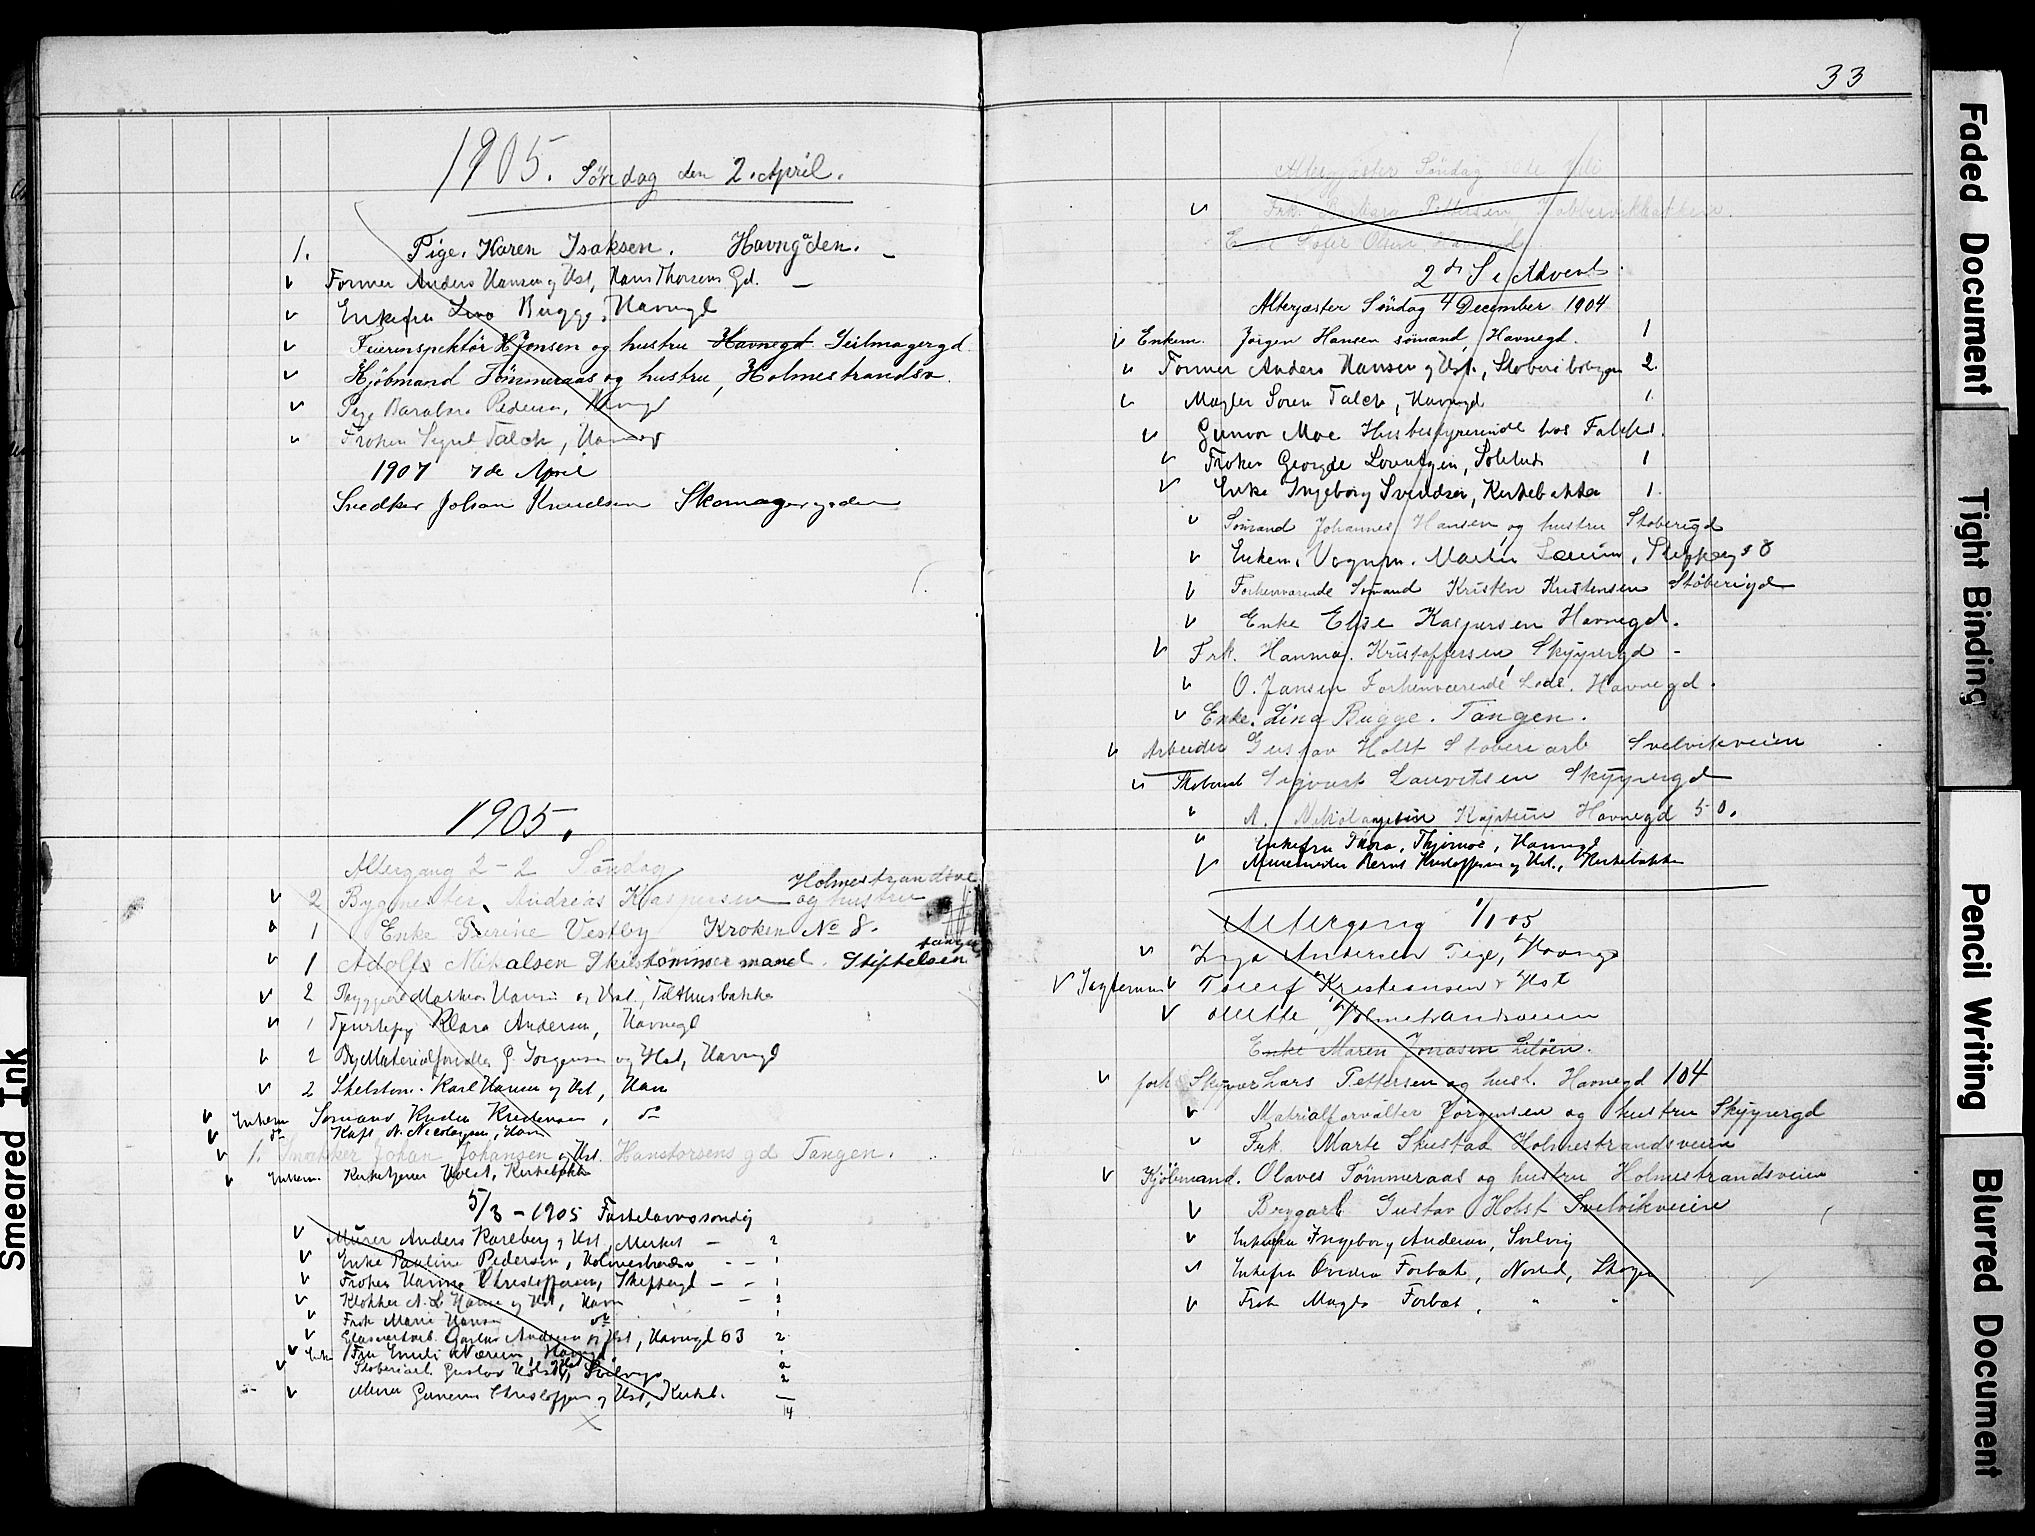 1905. Söndag den 2. April.
1. Pige. Karen Isaksen. Havngaden.
v Former Anders Hansen og Hst, Hans Thorsens Gd.
v Enkefru Bugge, Havnegd
v Feierinspektör Jonsen og hustru Havnegd Seilmagergd
v Kjöbmand Tömmeraas og hustru, Holmestrandsv.
v Pige Barabra Pedersen, Havngd
v Froken Sigrid Falck, Havneg
1907 7de April
Snedker Johan Knudsen Skomagergaden
1905.
Altergang 2-2 Söndag
Holmestrandsve
v 2 Bygmester Andreas Kaspersen og hustru
v 1 Enke Gurine Vestby Kroken No 8.
Tangen
v 1 Adolf Mikalsen Skibstömmermand. Stiftelsen
v 2 Mathias Hansen og Hst, Tolthusbakke
v 1 Klara Andersen, Havnegd
v 2 Materialforvalter Jorgensen og Hst, Havngd
v 2 Skibstom. Karl Hansen og Hst, Havn
v Enkem Sömand Kristen Kristensen, do
v do Kapt N. Nicolaysen, Havn
v 1. Snekker Johan Johansen og Hst. Hanstorsens gd Tangen.
v Enkem. Kirketjener Holst, Kirkebakke
5/3 - 1905 Fastelavnssondag
v Murer Anders Karlberg og Hst, Merket - 2
v Enke Pauline Pedersen, Holmestrandsv - - 1
v Froken Hanna Christoffersen, Skippergd - - 1
v Klokker A. L. Hansen og Hst, Havn - 2
v Frok Marie Hansen do 1
v Glasverksarb. Gustav Andersen og Hst, Havngd 63 2
v Enke Fru Emili Næren, Havngd 1
v Stoberiarb. Gustav Holst, Hst, Svelvigv 2
v Murer Christoffersen og Hst, Kirkeb. 2
14
33
Altergjæster Söndag
v Frk. Barbara Pettersen, Kobbervikbakken
Enke Sofie Olsen, Havnegd
2 ds S i Advent
Altergjæster Söndag 4 December 1904
v Enkem. Jørgen Hansen sømand, Havnegd. 1
v Former Anders Hansen og Hst., Stoberiboligen 2.
v Mægler Soren Falck, Havnegd 1.
v Gunvor Moe Husbestyrerinde hos Falcks.
v Froken Georgde Lorentzen, Solelud 1
v Enke Ingeborg Svendsen, Kirkebakke 1.
v Sömand Johannes Hansen, og hustru Stoberigd
v Enkem. Vognm. Martin Laurum, Skipperg 38
v Forhenværende Sömand Kristen Kristensen Stöberigd
v Enke Elise Kaspersen Havnegd.
v Frk. Hanna. Kristoffersen, Skyppergd -
v O. Jansen Forhenværende Lods. Havnegd.
v Enke. Lina Bugge. Tangen.
v Arbeider Gustav Holst Stoberiarb Svelvikveien
v Sigvart Lauritsen Skyppergd
v A. Nikolaysen Kaptein Havnegd 50.
v Enkefru Thora, Thjömoe, Havnegd
v Muremester Bernt Kristoffersen og Hst., Kirkebakke
Altergang 1/1 05
v Inga Andersen Pige, Havngd
v Enkemand v Kristiansen & Hst
v Mette, Holmestrandsveien
Enke Maren Jonasen Liløen.
v forh Skipper Lars Pettersen og hust. Havnegd 104
v Matrialforvalter Jorgensen og hustru Skyppergd
v Frk. Marte Skustad Holmestrandsveien
v Kjöbmand. Olaves Tömmeraas og hustru Holmestrandsveien
v Brygarb Gustav Holst Svelvikveien
v Enkefru Ingeborg Andersen, Svelvig
v Enkefru Ovedia Forbæk, Nosted, Skoger
v Frok Magda Forbæk, " "
Smeared Ink
Faded Document
Tight Binding
Pencil Writing
Blurred Document